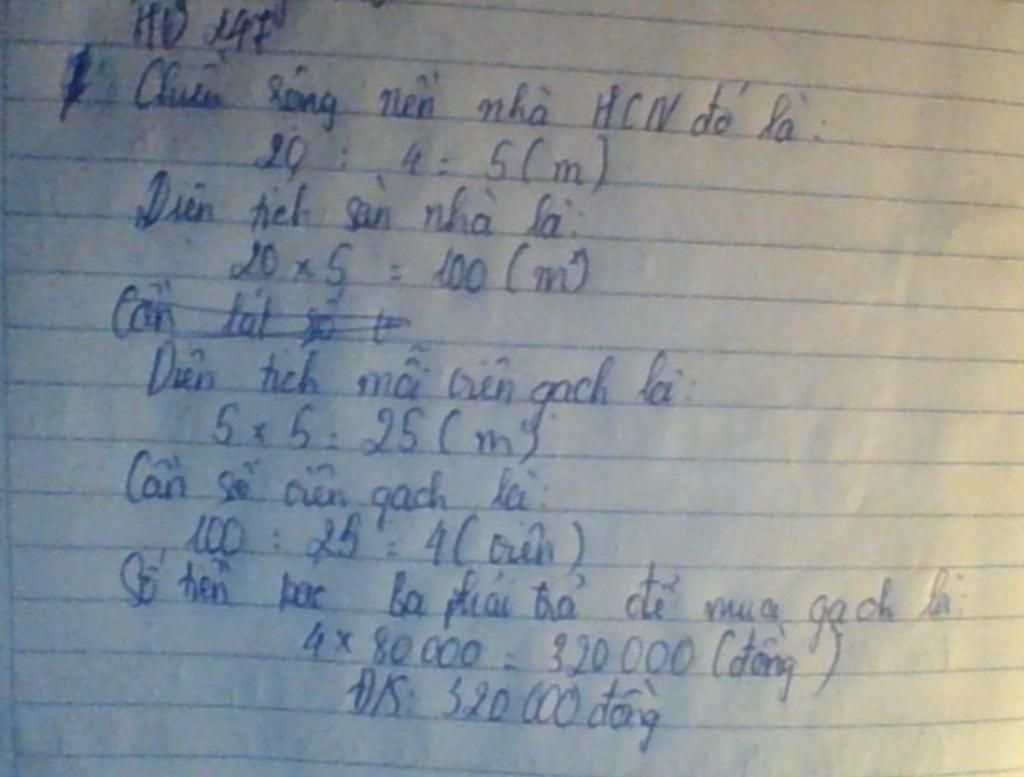 HĐ 147
Chiều rộng nền nhà HCN đó là:
20 : 4 = 5 (m)
Diện tích sàn nhà là:
20 × 5 = 100 (m²)
Cần tất số t
Diện tích mỗi viên gạch là:
5 × 5 = 25 (m²)
Cần số viên gạch là:
100 : 25 = 4 (viên)
Số tiền bác Ba phải trả để mua gạch là:
4 × 80 000 = 320 000 (đồng)
Đ/S: 320 000 đồng